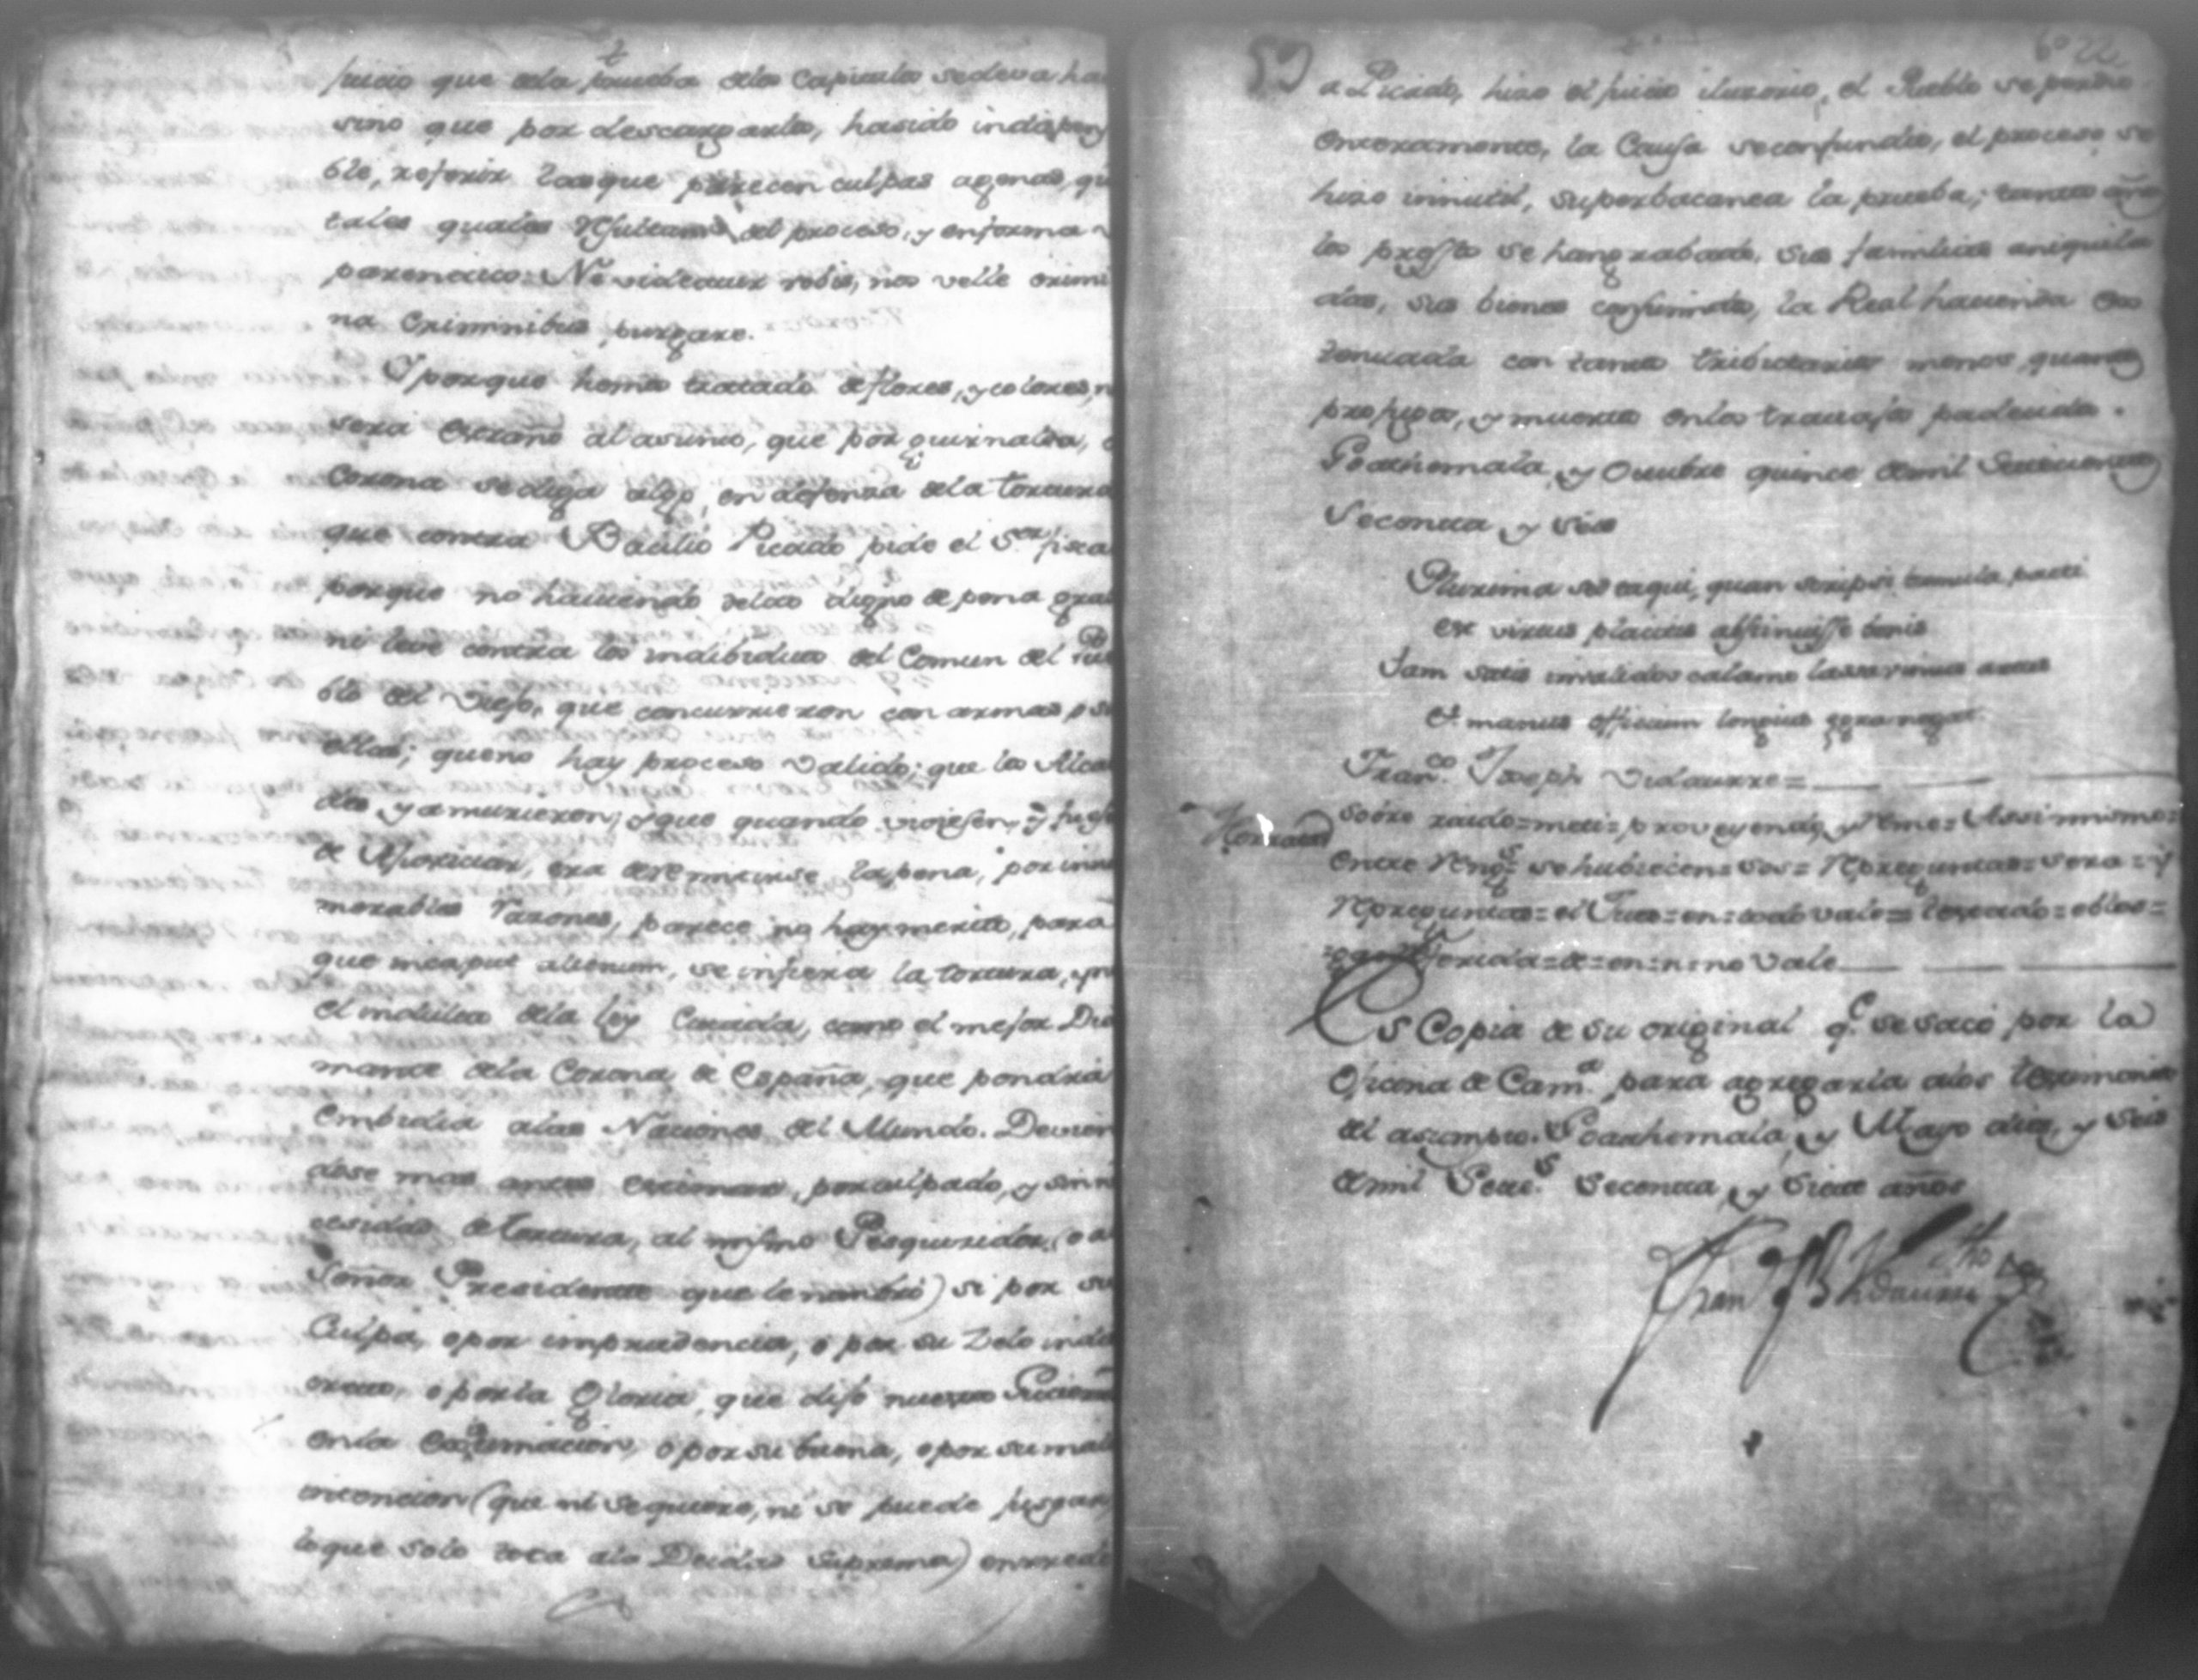 juicio que dela prueba delos Capitulos sedeva ha
sino que por descargarlos, hasido indispens
ble, referir loque parecen culpas agenas, qu
tales quales Resultan del proceso, y enforma
parentacio: Ne videamur vobis, nos velle crimi
na Criminibus purgare.
Y porque hemos tratado de flores, y colores, n
sera extraño al asunto, que por guirnalda, o
Corona se diga algo, en defensa dela tortura
que contra Basilio Picado pide el S.or fisca
porque no haviendo delito digno de pena gra
ni leve contra los indibiduos del Comun del Pue
blo del Viejo, que concurrieron con armas, o si
ellas; queno hay proceso valido; que los Alca
des ya murieron; y que quando viviesen, y
de Aporician, era desemeirse la pena, por inu
merables razones, parece no hay merito, para
que in caput alienum, se infiera la tortura, y
el indulto dela ley Citada, como el mejor Dia
mante dela Corona de España, que pondrá
Embidia alas Naciones del Mundo. Devien
dose mas antes estimar, por culpado, y sin n
cesidad de tortura, al mismo Pesquisidor, (o al
Señor Presidente que le nombró) si por su
Culpa, o por imprudencia, o por su Zelo inde
creto, o por la Gloria, que dijo nuestro
en la estimacion, o por su buena, o por su mala
intencion (que ni se quiere, ni se puede juzgar,
loque solo toca ala Deidad Suprema) enrrede
59
60 22
a Picado, hizo el juicio ilusorio, el Pueblo se perdio
enteramente, la Causa seconfundio, el proceso se
hizo innutil, superbacanea la prueba; tantos años
los presos se hangrabado, sus familias aniquila
das, sus bienes consumidos, la Real hacienda ex
tenuada con tantos tributarios menos, quantos
profugos, y muertos enlos travajos padecidos.
Goathemala, y Octubre quince demil Setecientos
Secenta y seis
Plurima sed taqui, quam scripsi, tumula pati
est virtus placitis abstinuisse bonis
Jam satis invalidos calamo lassavimus artus
Et manus officium longius aegra negat.
Fran.co Joseph Vidaurre=
Sobre raido=meti=proveyendo, y eme=Assimmismo=
Herrada
entre Reng.s se hubiecen=sos=Repreguntas=sera=y
Repreguntas=el Juez=en=todo vale=testado=eblos=
ferida=de=en=n=no Vale
Es Copia de su original q.e se sacó por la
Oficina de Cam.a para agregarla alos testimonios
del asumpto. Goathemala, y Mayo diez, y seis
demil Setec.s Secenta, y Siete años
Fran.co Jph Vidaurre